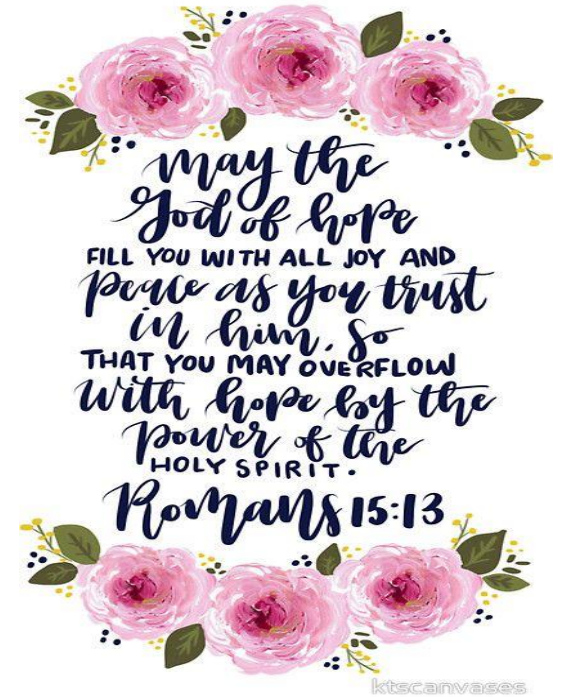 may the
God of hope
FILL YOU WITH ALL JOY AND
peace as you trust
in him, So
THAT YOU MAY OVERFLOW
with hope by the
power of the
HOLY SPIRIT.
Romans 15:13
ktscanvases